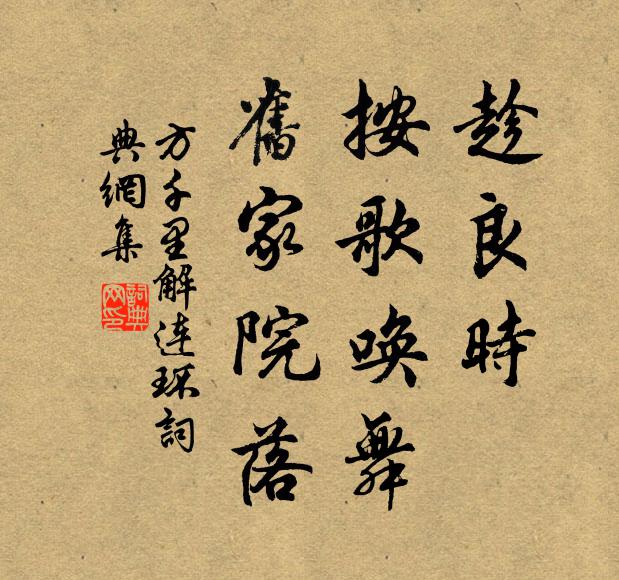 趁良時
按歌喚舞
舊家院落
方千里解連环詞
典網集
詞典網印